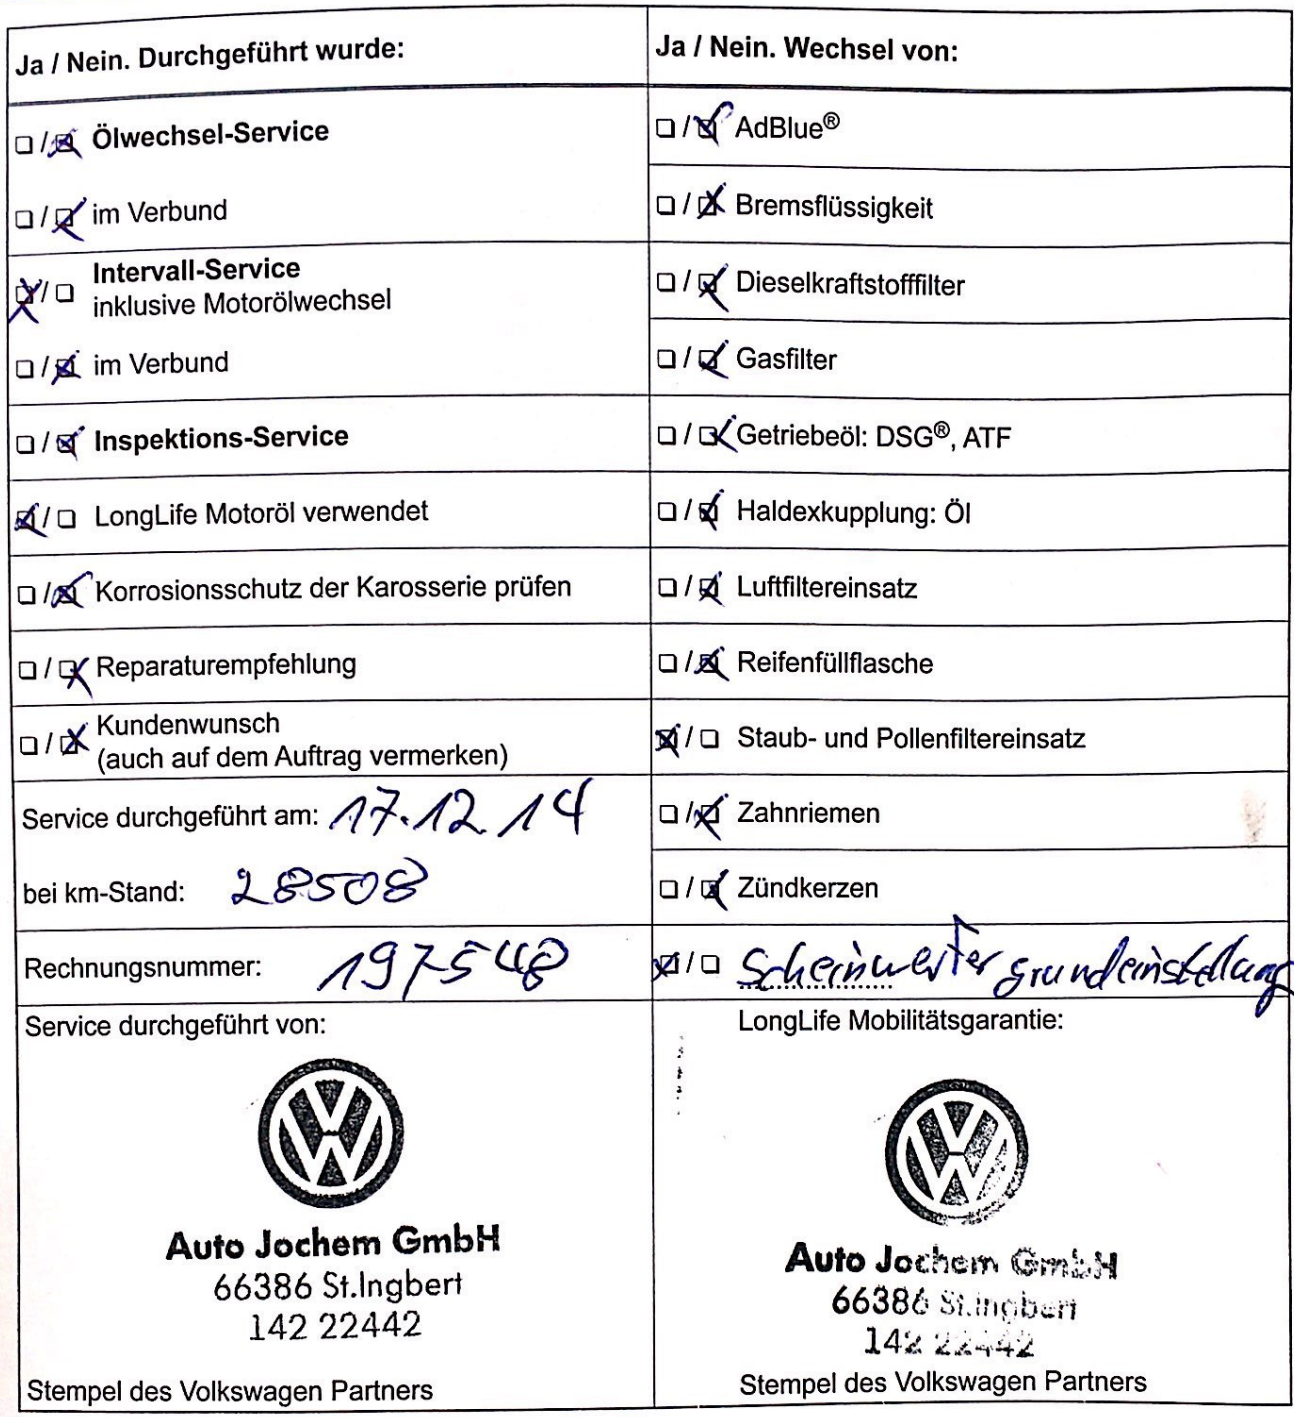 Ja / Nein. Durchgeführt wurde:
☐ / ☒ Ölwechsel-Service
☐ / ☒ im Verbund
☒ / ☐ Intervall-Service
inklusive Motorölwechsel
☐ / ☒ im Verbund
☐ / ☒ Inspektions-Service
☒ / ☐ LongLife Motoröl verwendet
☐ / ☒ Korrosionsschutz der Karosserie prüfen
☐ / ☒ Reparaturempfehlung
☐ / ☒ Kundenwunsch
(auch auf dem Auftrag vermerken)
Service durchgeführt am: 17.12.14
bei km-Stand: 28508
Rechnungsnummer: 197548
Service durchgeführt von:
Auto Jochem GmbH
66386 St.Ingbert
142 22442
Stempel des Volkswagen Partners
Ja / Nein. Wechsel von:
☐ / ☒ AdBlue®
☐ / ☒ Bremsflüssigkeit
☐ / ☒ Dieselkraftstofffilter
☐ / ☒ Gasfilter
☐ / ☒ Getriebeöl: DSG®, ATF
☐ / ☒ Haldexkupplung: Öl
☐ / ☒ Luftfiltereinsatz
☐ / ☒ Reifenfüllflasche
☒ / ☐ Staub- und Pollenfiltereinsatz
☐ / ☒ Zahnriemen
☐ / ☒ Zündkerzen
☒ / ☐ Scheinwerfer grundeinstellung
LongLife Mobilitätsgarantie:
Auto Jochem GmbH
66386 St.Ingbert
142 22442
Stempel des Volkswagen Partners